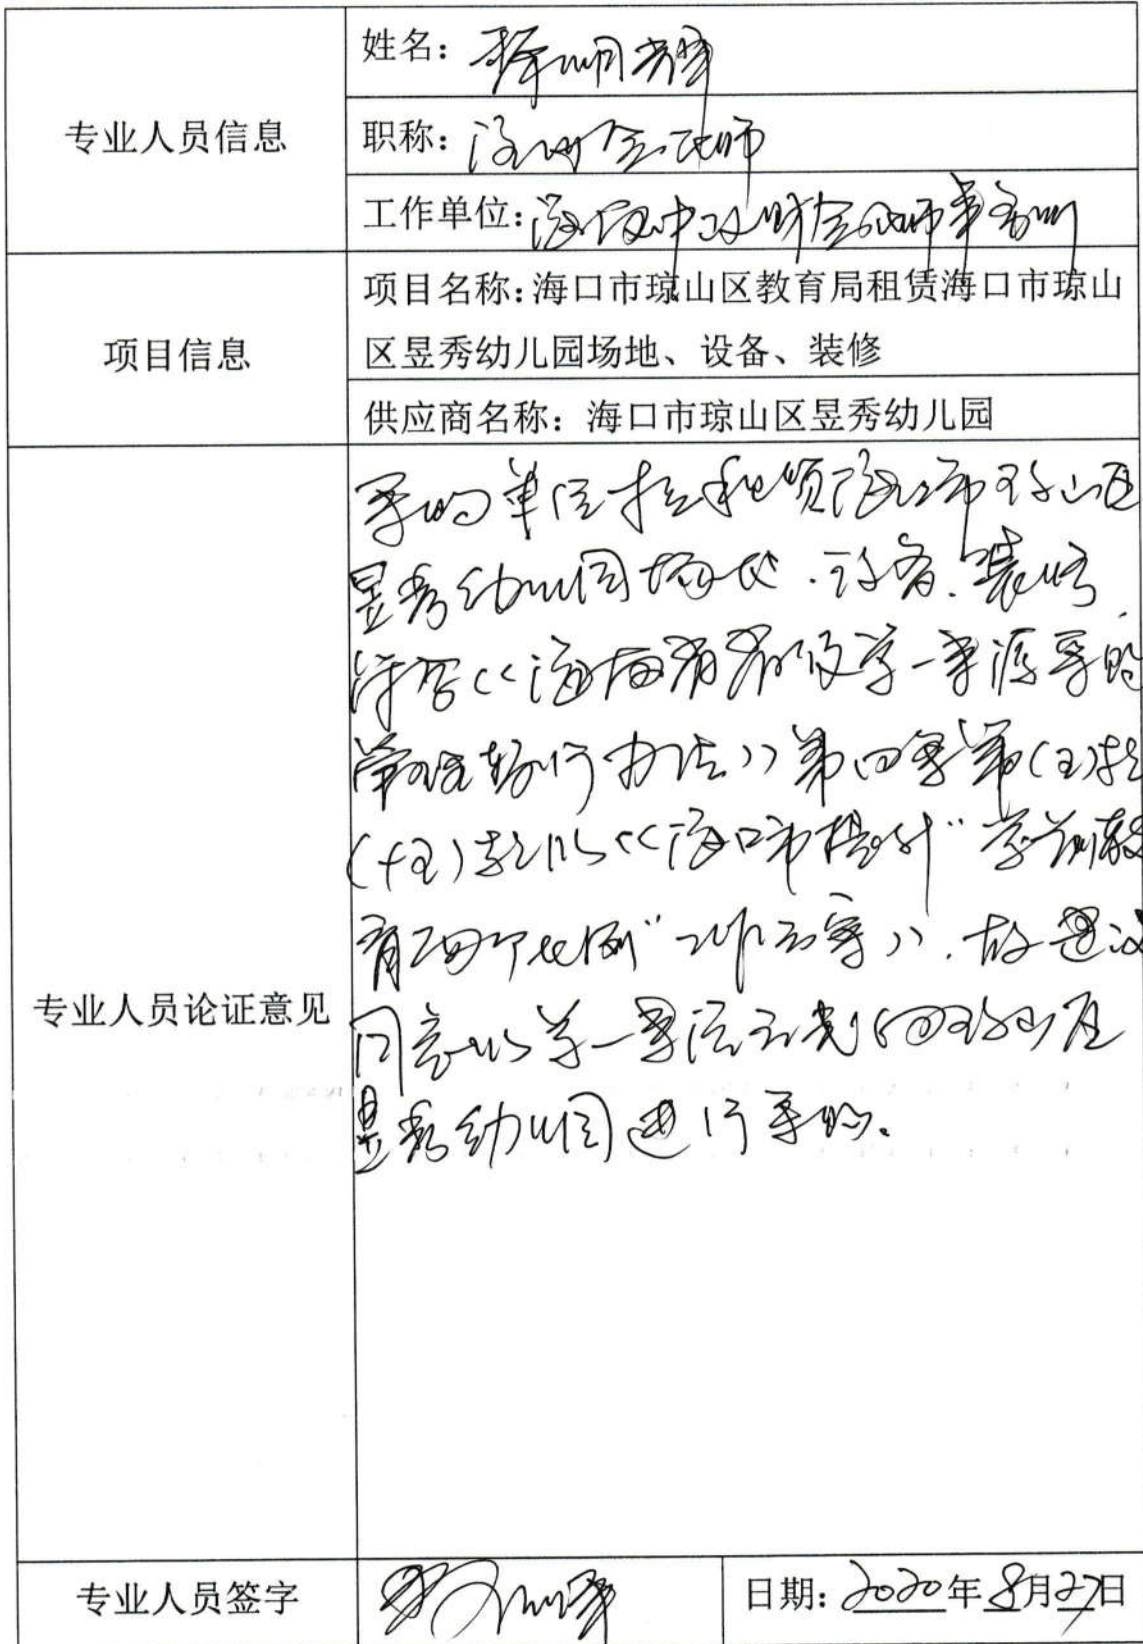 专业人员信息
姓名:
职称: 注册会计师
工作单位: 海南中 财会计师事务所
项目信息
项目名称: 海口市琼山区教育局租赁海口市琼山
区昱秀幼儿园场地、设备、装修
供应商名称: 海口市琼山区昱秀幼儿园
专业人员论证意见
采购单位 海口市琼山区
昱秀幼儿园场地、设备、装修,
符合《海南省省级单一来源采购
管理暂行办法》第四条第(五)款
(十五)款以《海口市提升"学前教
育两个比例"工作方案》.故建议
同意以单一来源方式 琼山区
昱秀幼儿园进行采购。
专业人员签字
日期: 2020年8月27日